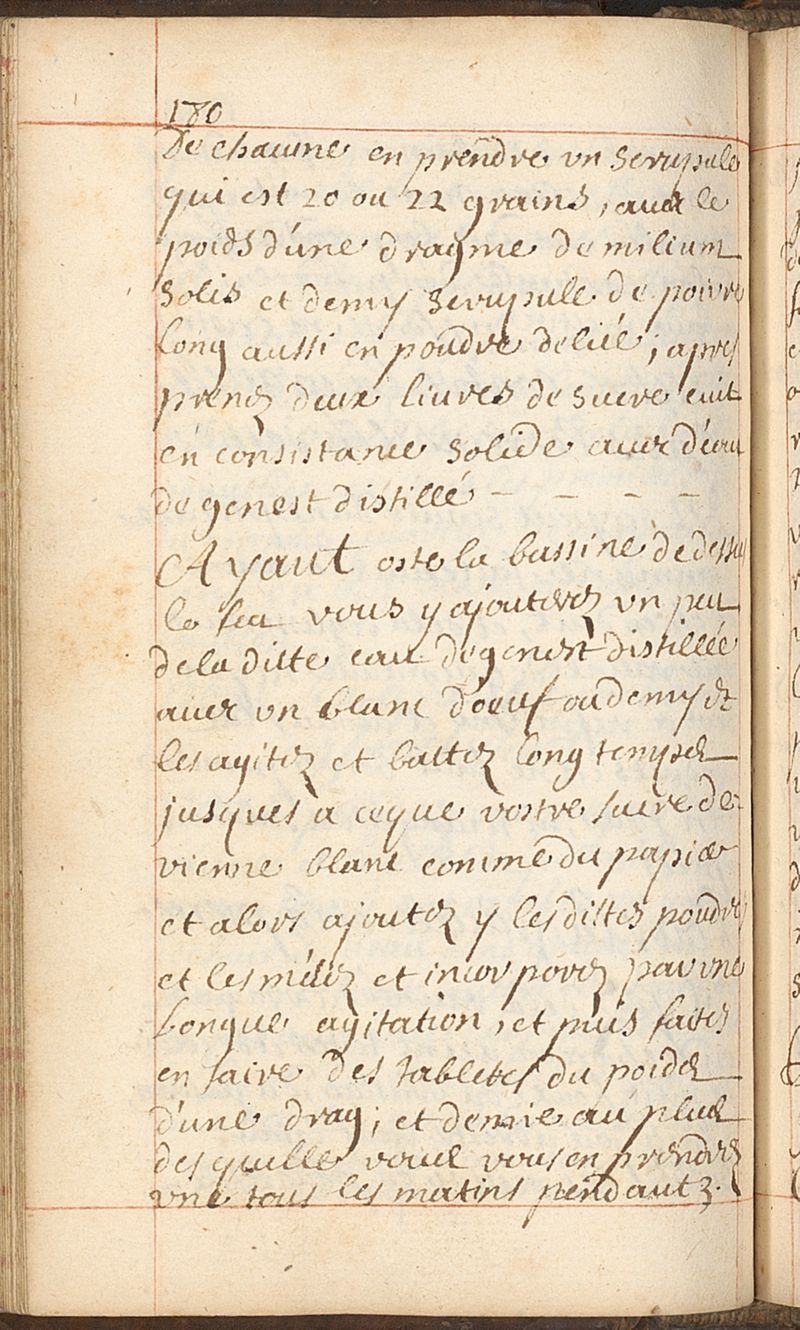 180
De chacune en prendre un scrupule
qui est 20 ou 22 grains, avec le
poids d'une dragme de milium
solis et demy scrupule de poivre
long aussi en poudre deliée, apres
prenez deux livres de sucre cuit
en consistance solide avec d'eau
de genest distillé - - - -
Ayant osté la bassine de dessus
le feu vous y ajouterez un peu
de la ditte eau de genest distillée
avec un blanc d'oeuf ou demy et
les agitez et battez long temps
jusques à ce que vostre sucre de-
vienne blanc comme du papier
et alors ajoutez y les dittes poudres
et les mélez et incorporez par une
longue agitation, et puis faites
en faire des tabletes du poids
d'une drag; et demie au plus
des quelle vous vous en prendrez
une tous les matins pendant 3.